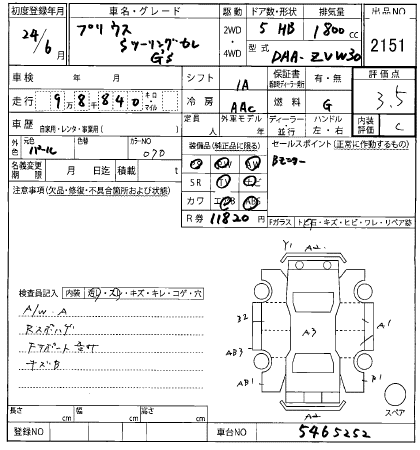 初度登録年月 車名・グレード 駆動 ドア数・形状 排気量 出品NO
24/6月 プリウス Sツーリングセレ G's 2WD ・ 4WD 5 HB 1800 cc 2151
型式 DAA-ZVW30
車検 年 月 シフト IA 保証書 有・無 評価点
走行 9万8千840 キロ・マイル 冷房 AAC 燃料 G 3.5
車歴 自家用・レンタ・事業用( ) 定員 人 外車モデル 年 ディーラー・並行 ハンドル 左・右 内装評価 C
外色 元色 パール 色替 カラーNO 070 装備品(純正品に限る) セールスポイント(正常に作動するもの)
PS PW AW Bモニター
名義変更期限 月 日迄 積載 t SR TV ナビ
注意事項(欠品・修復・不具合箇所および状態) カワ エアB ABS
R券 11820円 Fガラス トビ石・キズ・ヒビ・ワレ・リペア跡
検査員記入 内装 汚レ・スレ・キズ・キレ・コゲ・穴
A/W.A
キズB
Y1 A2
B2 A3 A1
AB3
AB1 B1
A2
スペア
長さ cm 幅 cm 高さ cm
登録NO 車台NO 5465252